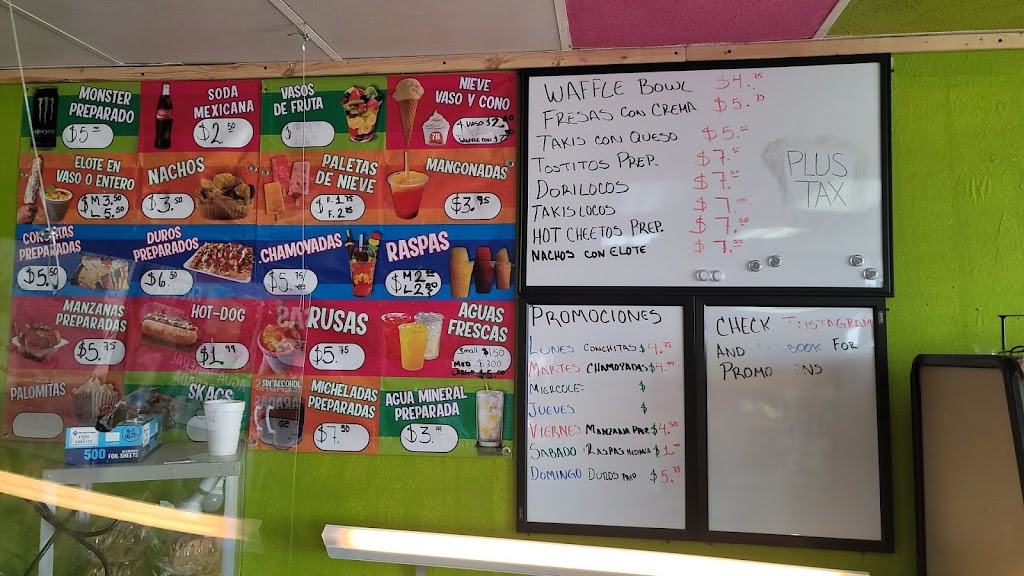 MONSTER
PREPARADO
$5
SODA
MEXICANA
$2.50
VASOS
DE FRUTA
$
NIEVE
VASO Y CONO
ELOTE EN
VASO O ENTERO
$ M 3.50
L 5.50
NACHOS
$3.50
PALETAS
DE NIEVE
$ P. 1.75
F. 2.75
MANGONADAS
$3.95
PREPARADAS
$5.50
DUROS
PREPARADOS
$6.50
CHAMOYADAS
$5.75
RASPAS
$ M 2
L 2
MANZANAS
PREPARADAS
$5.75
HOT-DOG
$1.99
RUSAS
$5.75
AGUAS
FRESCAS
Small $1.50
MED $3.00
PALOMITAS
SKAGS
SIN ALCOHOL
MICHELADAS
PREPARADAS
$7.50
AGUA MINERAL
PREPARADA
$3.
500 FOIL SHEETS
WAFFLE BOWL $4.75
FRESAS CON CREMA $5.75
TAKIS CON QUESO $5.
TOSTITOS PREP. $7.
DORILOCOS $7.
TAKISLOCOS $7.
HOT CHEETOS PREP. $7.
NACHOS CON ELOTE $7.
PLUS
TAX
PROMOCIONES
LUNES CONCHITAS $4.75
MARTES CHAMOYADAS $4.99
MIERCOLES $
JUEVES $
VIERNES MANZANA PREP. $4.50
SABADO RASPAS MEDIANAS $1.
DOMINGO DUROS PREP $5.75
CHECK INSTAGRAM
AND FOR